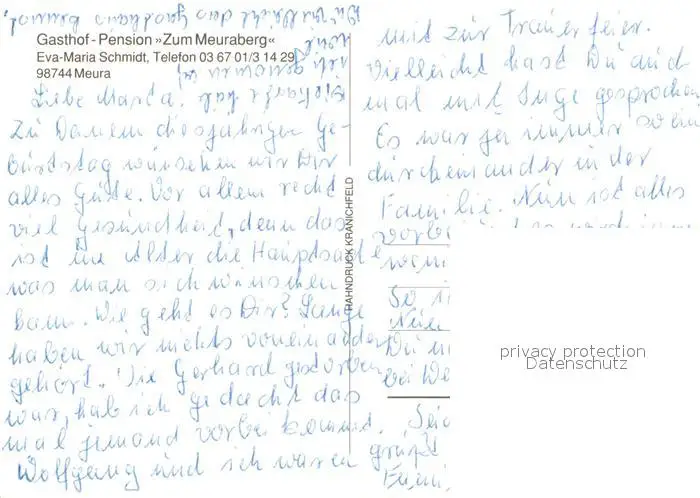 Gasthof-Pension »Zum Meuraberg«
Eva-Maria Schmidt, Telefon 03 67 01/3 14 29
98744 Meura
Liebe
Zu Deinem diesjährigen Ge-
burtstag wünschen wir Dir
alles Gute. Vor allem recht
viel Gesundheit, denn das
ist im Alter die Hauptsache
was man sich wünschen
kann. Wie geht es Dir? Lange
haben wir nichts voneinander
gehört. Die Gerhard gestorben
war, hab ich gedacht das
mal jemand vorbei kommt.
Wolfgang und ich waren
mit zur Trauerfeier.
Vielleicht hast Du auch
mal mit Inge gesprochen
Es war ja immer so ein
durcheinander in der
Familie. Nun ist alles
vorbei
So
Nun
Du
bei
Seid
grüßt
BAHNDRUCK KRANICHFELD
privacy protection
Datenschutz